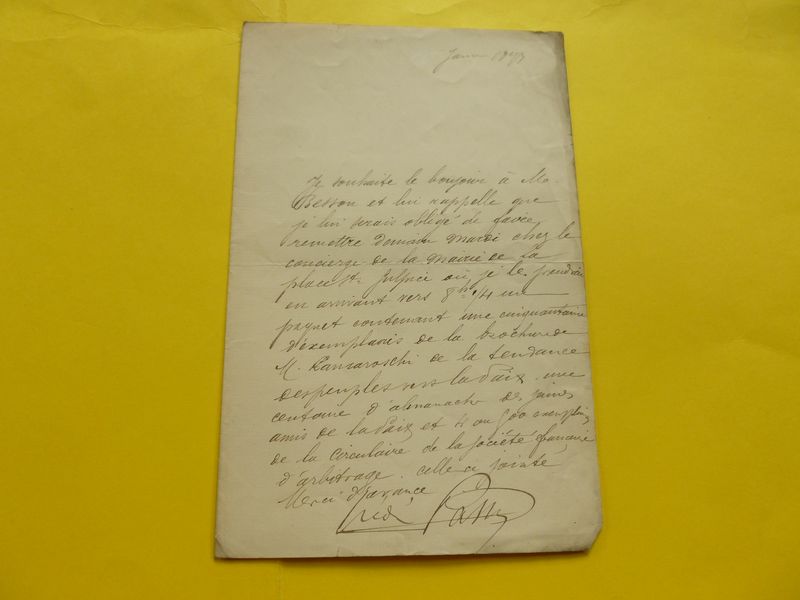 Je souhaite le bonjour à Mr
Besson et lui rappelle que
je lui serais obligé de faire
remettre demain mardi chez le
concierge de la mairie de la
place St Sulpice où je les prendrai
en arrivant vers 8h 1/4 un
paquet contenant une cinquantaine
d'exemplaires de la brochure de
M. de la tendance
des peuples vers la Paix une
centaine d'almanachs des jeunes
amis de la Paix et 4 ou 500 exemplaires
de la circulaire de la société française
d'arbitrage. celle ci jointe
Merci d'avance
Fréd. Passy